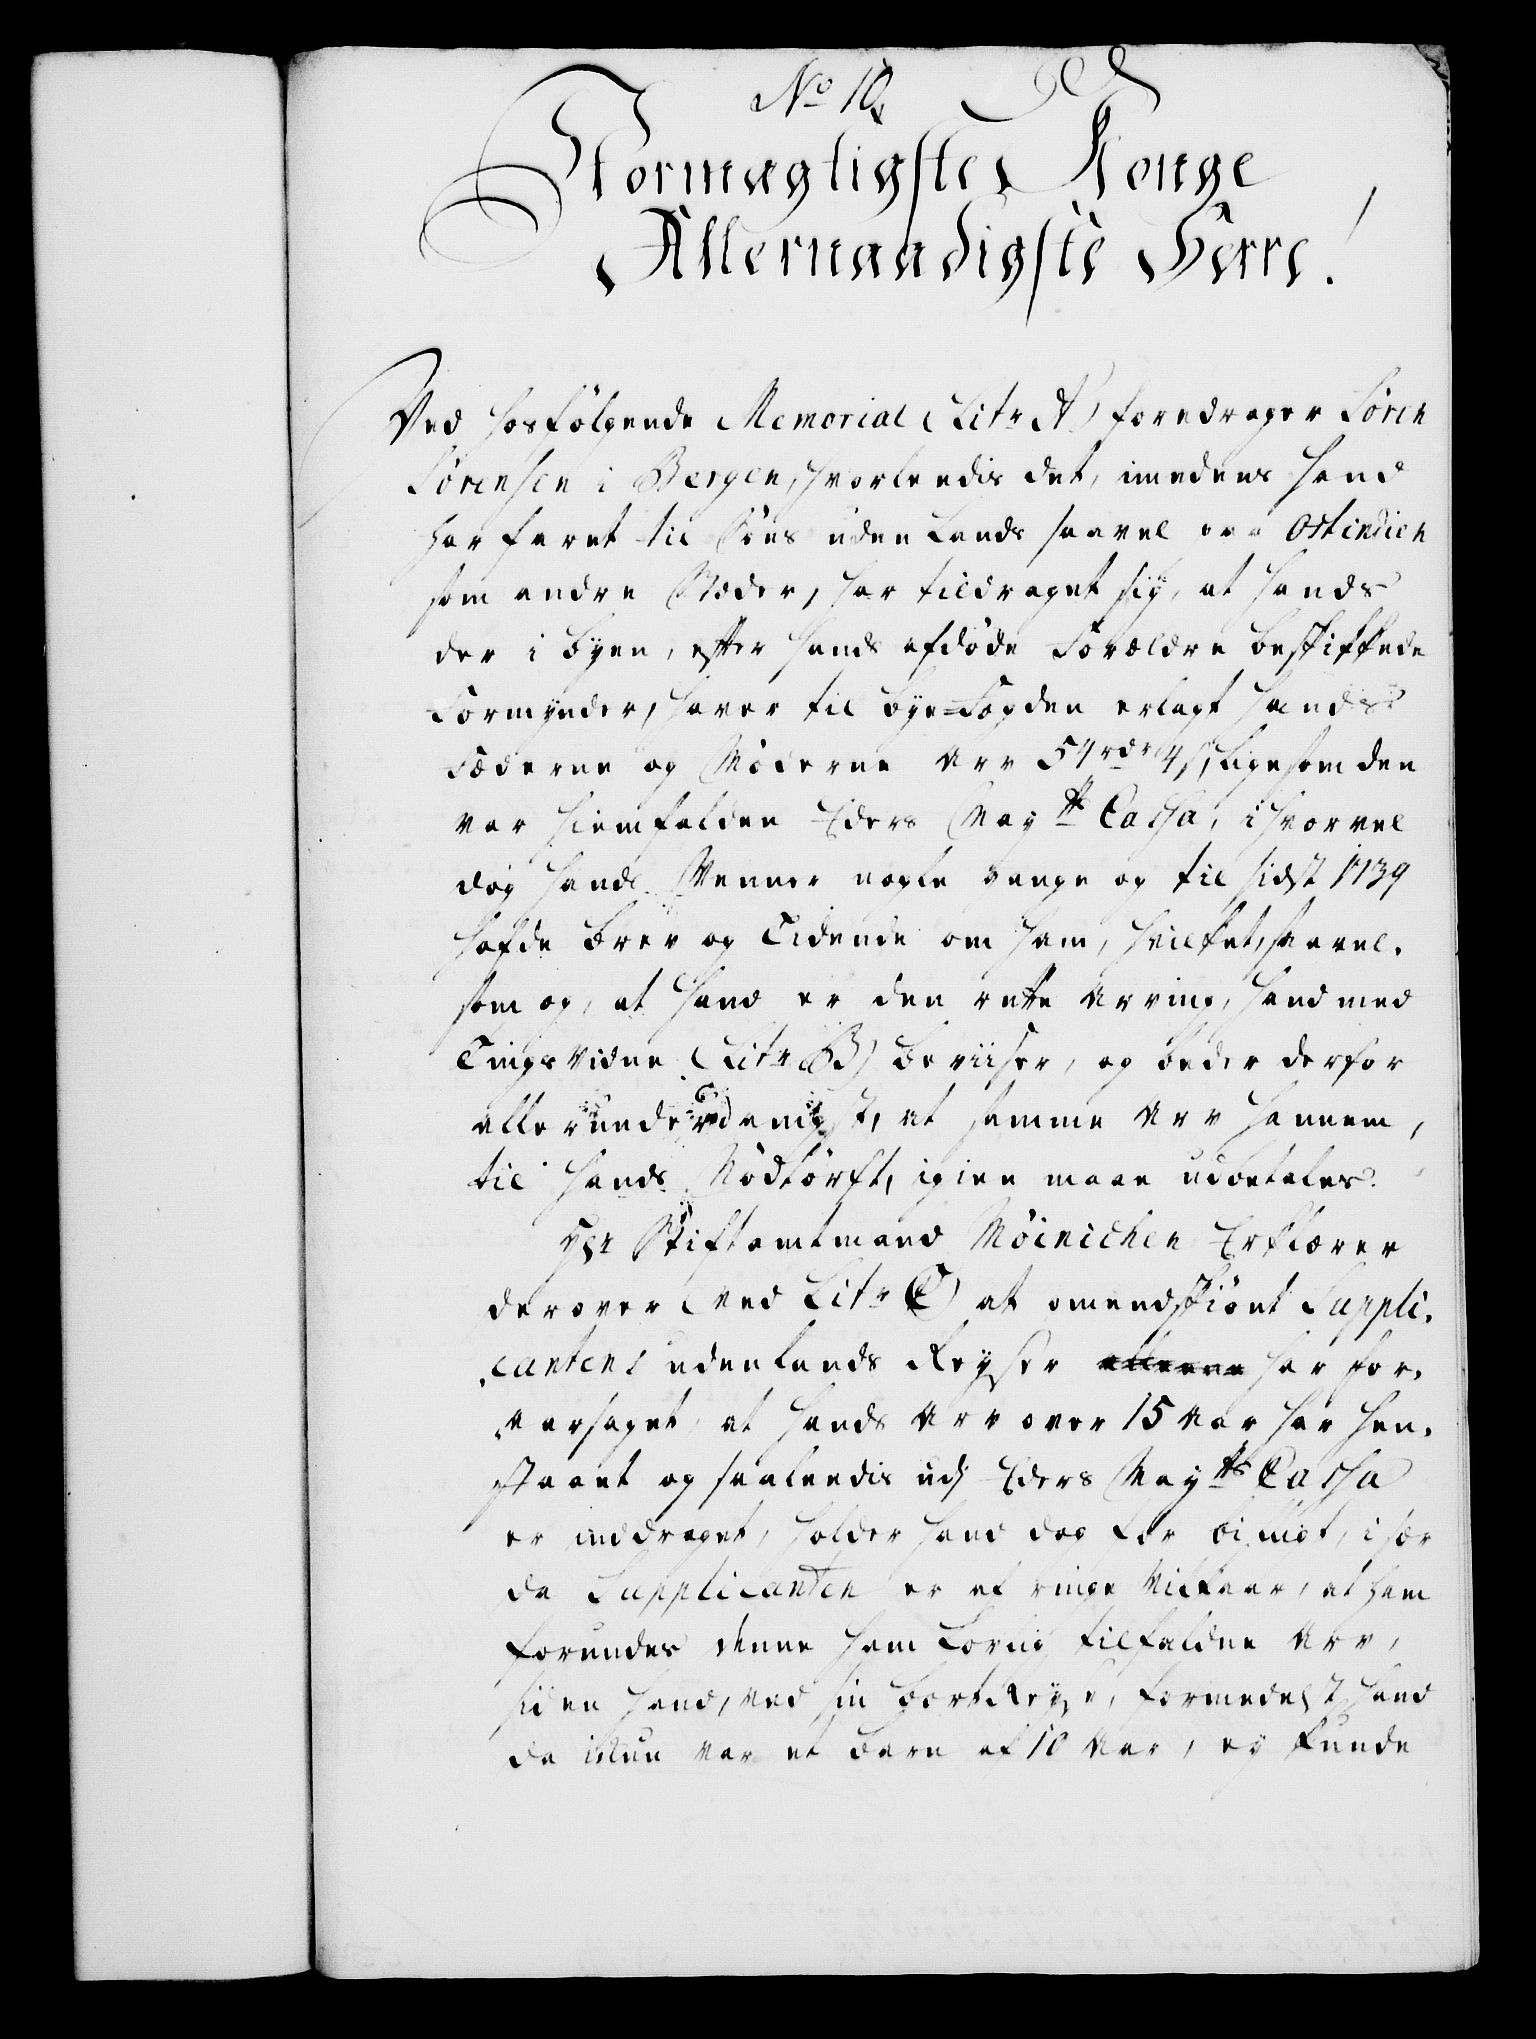 No 10.
Stormægtigste Konge
Allernaadigste Herre!
Ved hosfölgende Memorial (Litr A) foredrager Sören
Sörensen i Bergen, hvorleedis det, imedens hand
har faret til Söes uden Lands saavel paa Ostindien
som andre Stæder, har tildraget sig, at hands
der i byen, efter hands afdöde Forældre beskikkede
Formynder, haver til bye-Fogden erlagt hands
Fæderne og Möderne Arv 54 rdr 4 s, ligesom den
var hiemfalden Eders Mayts Cassa, ihvorvel
dog hands Venner nogle gange og til sidst 1739
hafde brev og Tidende om ham, hvilket, saavel-
som og, at hand er den rette Arving, hand med
Tings Vidne (Litr B) beviiser, og beder derfor
allerunderdanigst, at samme Arv hannem,
til hands Nödtörft, igien maae udbetales.
Hr Stiftamtmand Möinichen Erklærer
derover (ved Litr C) at omendskiönt Suppli-
cantens udenlands Reyser har for-
aarsaget, at hands Arv over 15 Aar har hen-
staaet og saaleedis udi Eders Mayts Cassa
er inddraget, holder hand dog for billigt, i sær
da Supplicanten er af ringe Vilkaar, at ham
forundes denne ham lovlig tilfaldne Arv,
siden hand, ved sin bortReyse, formedelst hand
da ikkun var et barn af 10 Aar, ey kunde